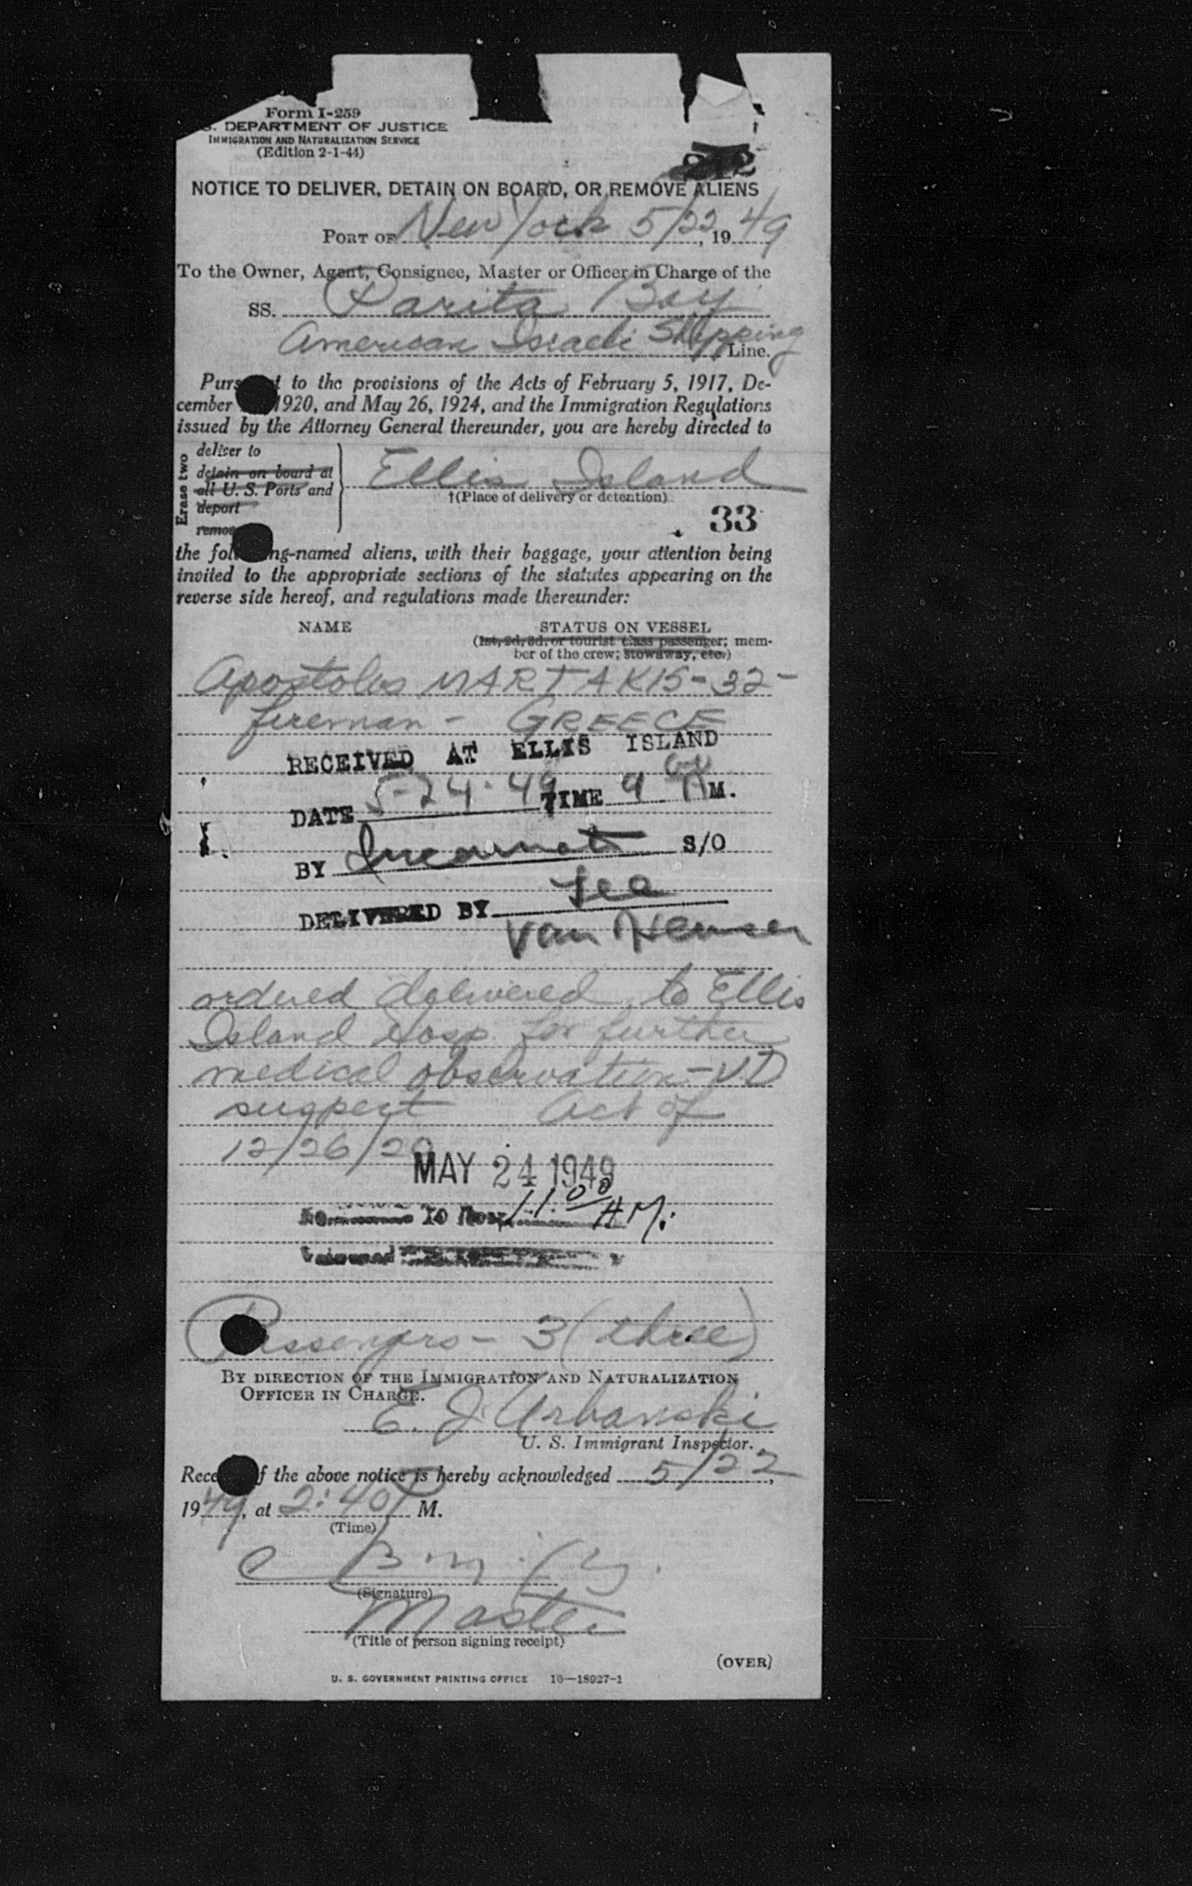 Form I-259
S. DEPARTMENT OF JUSTICE
IMMIGRATION AND NATURALIZATION SERVICE
(Edition 2-1-44)
NOTICE TO DELIVER, DETAIN ON BOARD, OR REMOVE ALIENS
PORT OF New York 5/22, 1949
To the Owner, Agent, Consignee, Master or Officer in Charge of the
SS. Parita Bay
American Israeli Shipping Line.
Purs t to the provisions of the Acts of February 5, 1917, De-
cember 1920, and May 26, 1924, and the Immigration Regulations
issued by the Attorney General thereunder, you are hereby directed to
Erase two
deliver to
detain on board at
all U. S. Ports and
deport
remo
Ellis Island
†(Place of delivery or detention)
33
the fol ng-named aliens, with their baggage, your attention being
invited to the appropriate sections of the statutes appearing on the
reverse side hereof, and regulations made thereunder:
NAME STATUS ON VESSEL
(1st, 2d, 3d, or tourist class passenger; mem-
ber of the crew; stowaway, etc.)
Apostolos MARTAKIS - 32 -
fireman - GREECE
RECEIVED AT ELLIS ISLAND
DATE 5-24-49 TIME 9 00 AM.
BY S/O
DELIVERED BY Lee
Van Heusen
ordered delivered to Ellis
Island Hosp. for further
medical observation - VD
suspect Act of
12/26/20
MAY 24 1949
To Hosp 11:00 AM.
Passengers - 3 (three)
BY DIRECTION OF THE IMMIGRATION AND NATURALIZATION
OFFICER IN CHARGE.
E. J. Urbanski
U. S. Immigrant Inspector.
Rece f the above notice is hereby acknowledged 5/22,
1949, at 2:40 P M.
(Time)
(Signature)
Master
(Title of person signing receipt)
(OVER)
U. S. GOVERNMENT PRINTING OFFICE 16—18927-1